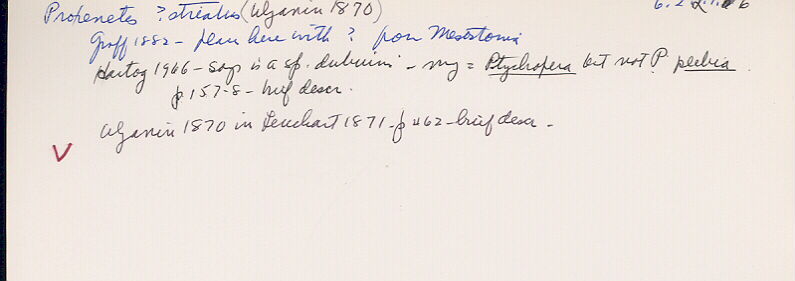 Proxenetes ? striatus (Uljanin 1870)
Graff 1882 - places here with ? from Mesostomia
Hartog 1966 - says is a sp. dubium - may = Ptychopera but not P. plebia
p 157-8 - brief descr.
Uljanin 1870 in Leuckart 1871 - p 462 - brief descr -
V